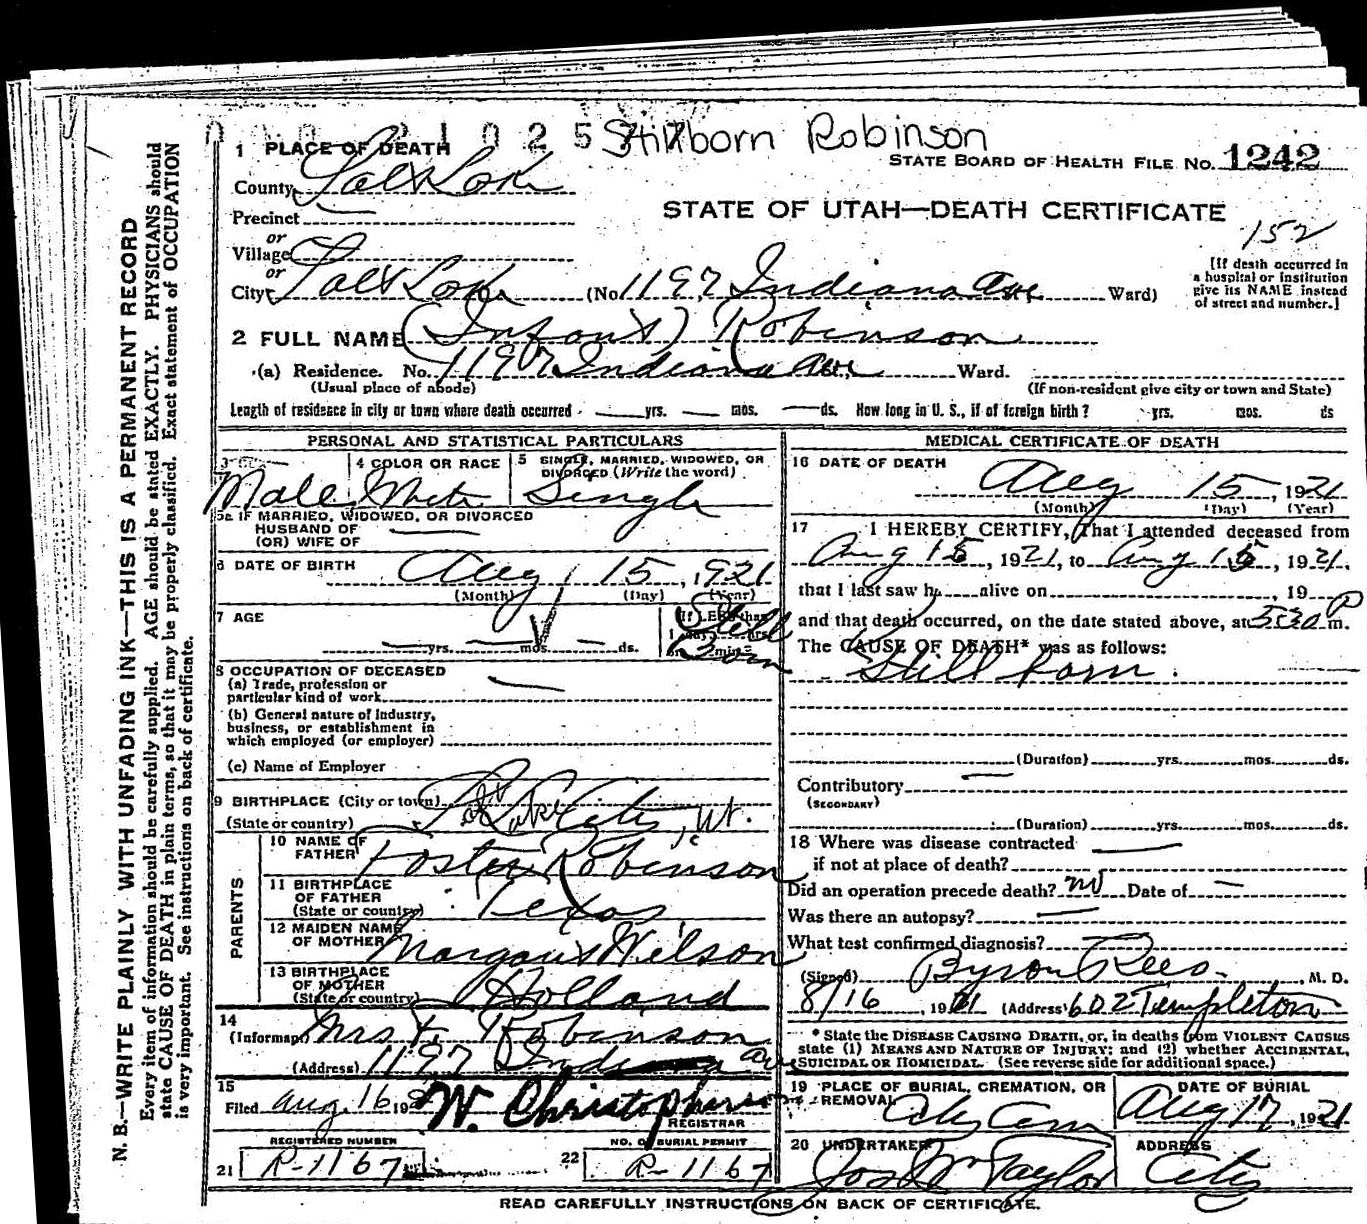 Stillborn Robinson
1 PLACE OF DEATH
STATE BOARD OF HEALTH FILE NO. 1242
County Salt Lake
STATE OF UTAH—DEATH CERTIFICATE
Precinct
152
or
Village
or
City Salt Lake (No 1197 Indiana Ave Ward)
[If death occurred in
a hospital or institution
give its NAME instead
of street and number.]
2 FULL NAME (Infant) Robinson
(a) Residence. No. 1197 Indiana Ave, Ward.
(Usual place of abode) (If non-resident give city or town and State)
Length of residence in city or town where death occurred - yrs. mos. ds. How long in U. S., if of foreign birth? yrs. mos. ds
PERSONAL AND STATISTICAL PARTICULARS
3 SEX
4 COLOR OR RACE
5 SINGLE, MARRIED, WIDOWED, OR
DIVORCED (Write the word)
Male White Single
5a IF MARRIED, WIDOWED, OR DIVORCED
HUSBAND OF
(OR) WIFE OF
6 DATE OF BIRTH Aug 15, 1921
(Month) (Day) (Year)
7 AGE yrs. mos. ds.
If LESS than
1 day hrs.
or min.
Still
Born
8 OCCUPATION OF DECEASED
(a) Trade, profession or
particular kind of work
(b) General nature of industry,
business, or establishment in
which employed (or employer)
(c) Name of Employer
9 BIRTHPLACE (City or town)
(State or country) Salt Lake City, Ut.
PARENTS
10 NAME OF
FATHER Foster Robinson
11 BIRTHPLACE
OF FATHER
(State or country) Texas
12 MAIDEN NAME
OF MOTHER Wilson
13 BIRTHPLACE
OF MOTHER
(State or country) Holland
14
(Informant) Mrs F. Robinson
(Address) 1197 Indiana Ave
15
Filed Aug. 16 192 W. Christopherson
REGISTRAR
REGISTERED NUMBER
21 R-1167
NO. OF BURIAL PERMIT
22 R-1167
MEDICAL CERTIFICATE OF DEATH
16 DATE OF DEATH
Aug 15, 1921
(Month) (Day) (Year)
17 I HEREBY CERTIFY, That I attended deceased from
Aug 15, 1921, to Aug 15, 1921.
that I last saw h alive on , 19
and that death occurred, on the date stated above, at 530 P m.
The CAUSE OF DEATH* was as follows:
Still born.
(Duration) yrs. mos. ds.
Contributory
(SECONDARY)
(Duration) yrs. mos. ds.
18 Where was disease contracted
if not at place of death?
Did an operation precede death? no Date of
Was there an autopsy?
What test confirmed diagnosis?
(Signed) Byron Rees, M. D.
8/16, 1921 (Address) 602 Templeton
* State the DISEASE CAUSING DEATH, or, in deaths from VIOLENT CAUSES
state (1) MEANS AND NATURE OF INJURY; and (2) whether ACCIDENTAL,
SUICIDAL OR HOMICIDAL. (See reverse side for additional space.)
19 PLACE OF BURIAL, CREMATION, OR
REMOVAL City Cem
DATE OF BURIAL
Aug 17, 1921
20 UNDERTAKER
Jos Wm Taylor
ADDRESS
City
READ CAREFULLY INSTRUCTIONS ON BACK OF CERTIFICATE.
N. B.—WRITE PLAINLY WITH UNFADING INK—THIS IS A PERMANENT RECORD
Every item of information should be carefully supplied. AGE should be stated EXACTLY. PHYSICIANS should
state CAUSE OF DEATH in plain terms, so that it may be properly classified. Exact statement of OCCUPATION
is very important. See instructions on back of certificate.